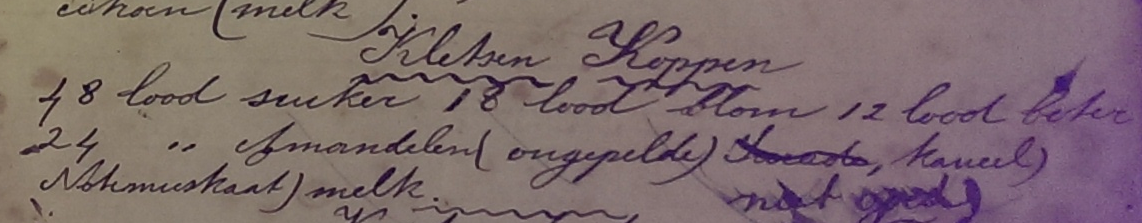 (melk)
Kletsen Koppen
48 lood suiker 18 lood blom 12 lood boter
24 " Amandelen (ongepelde) kaneel)
Notemuskaat) melk. niet goed)